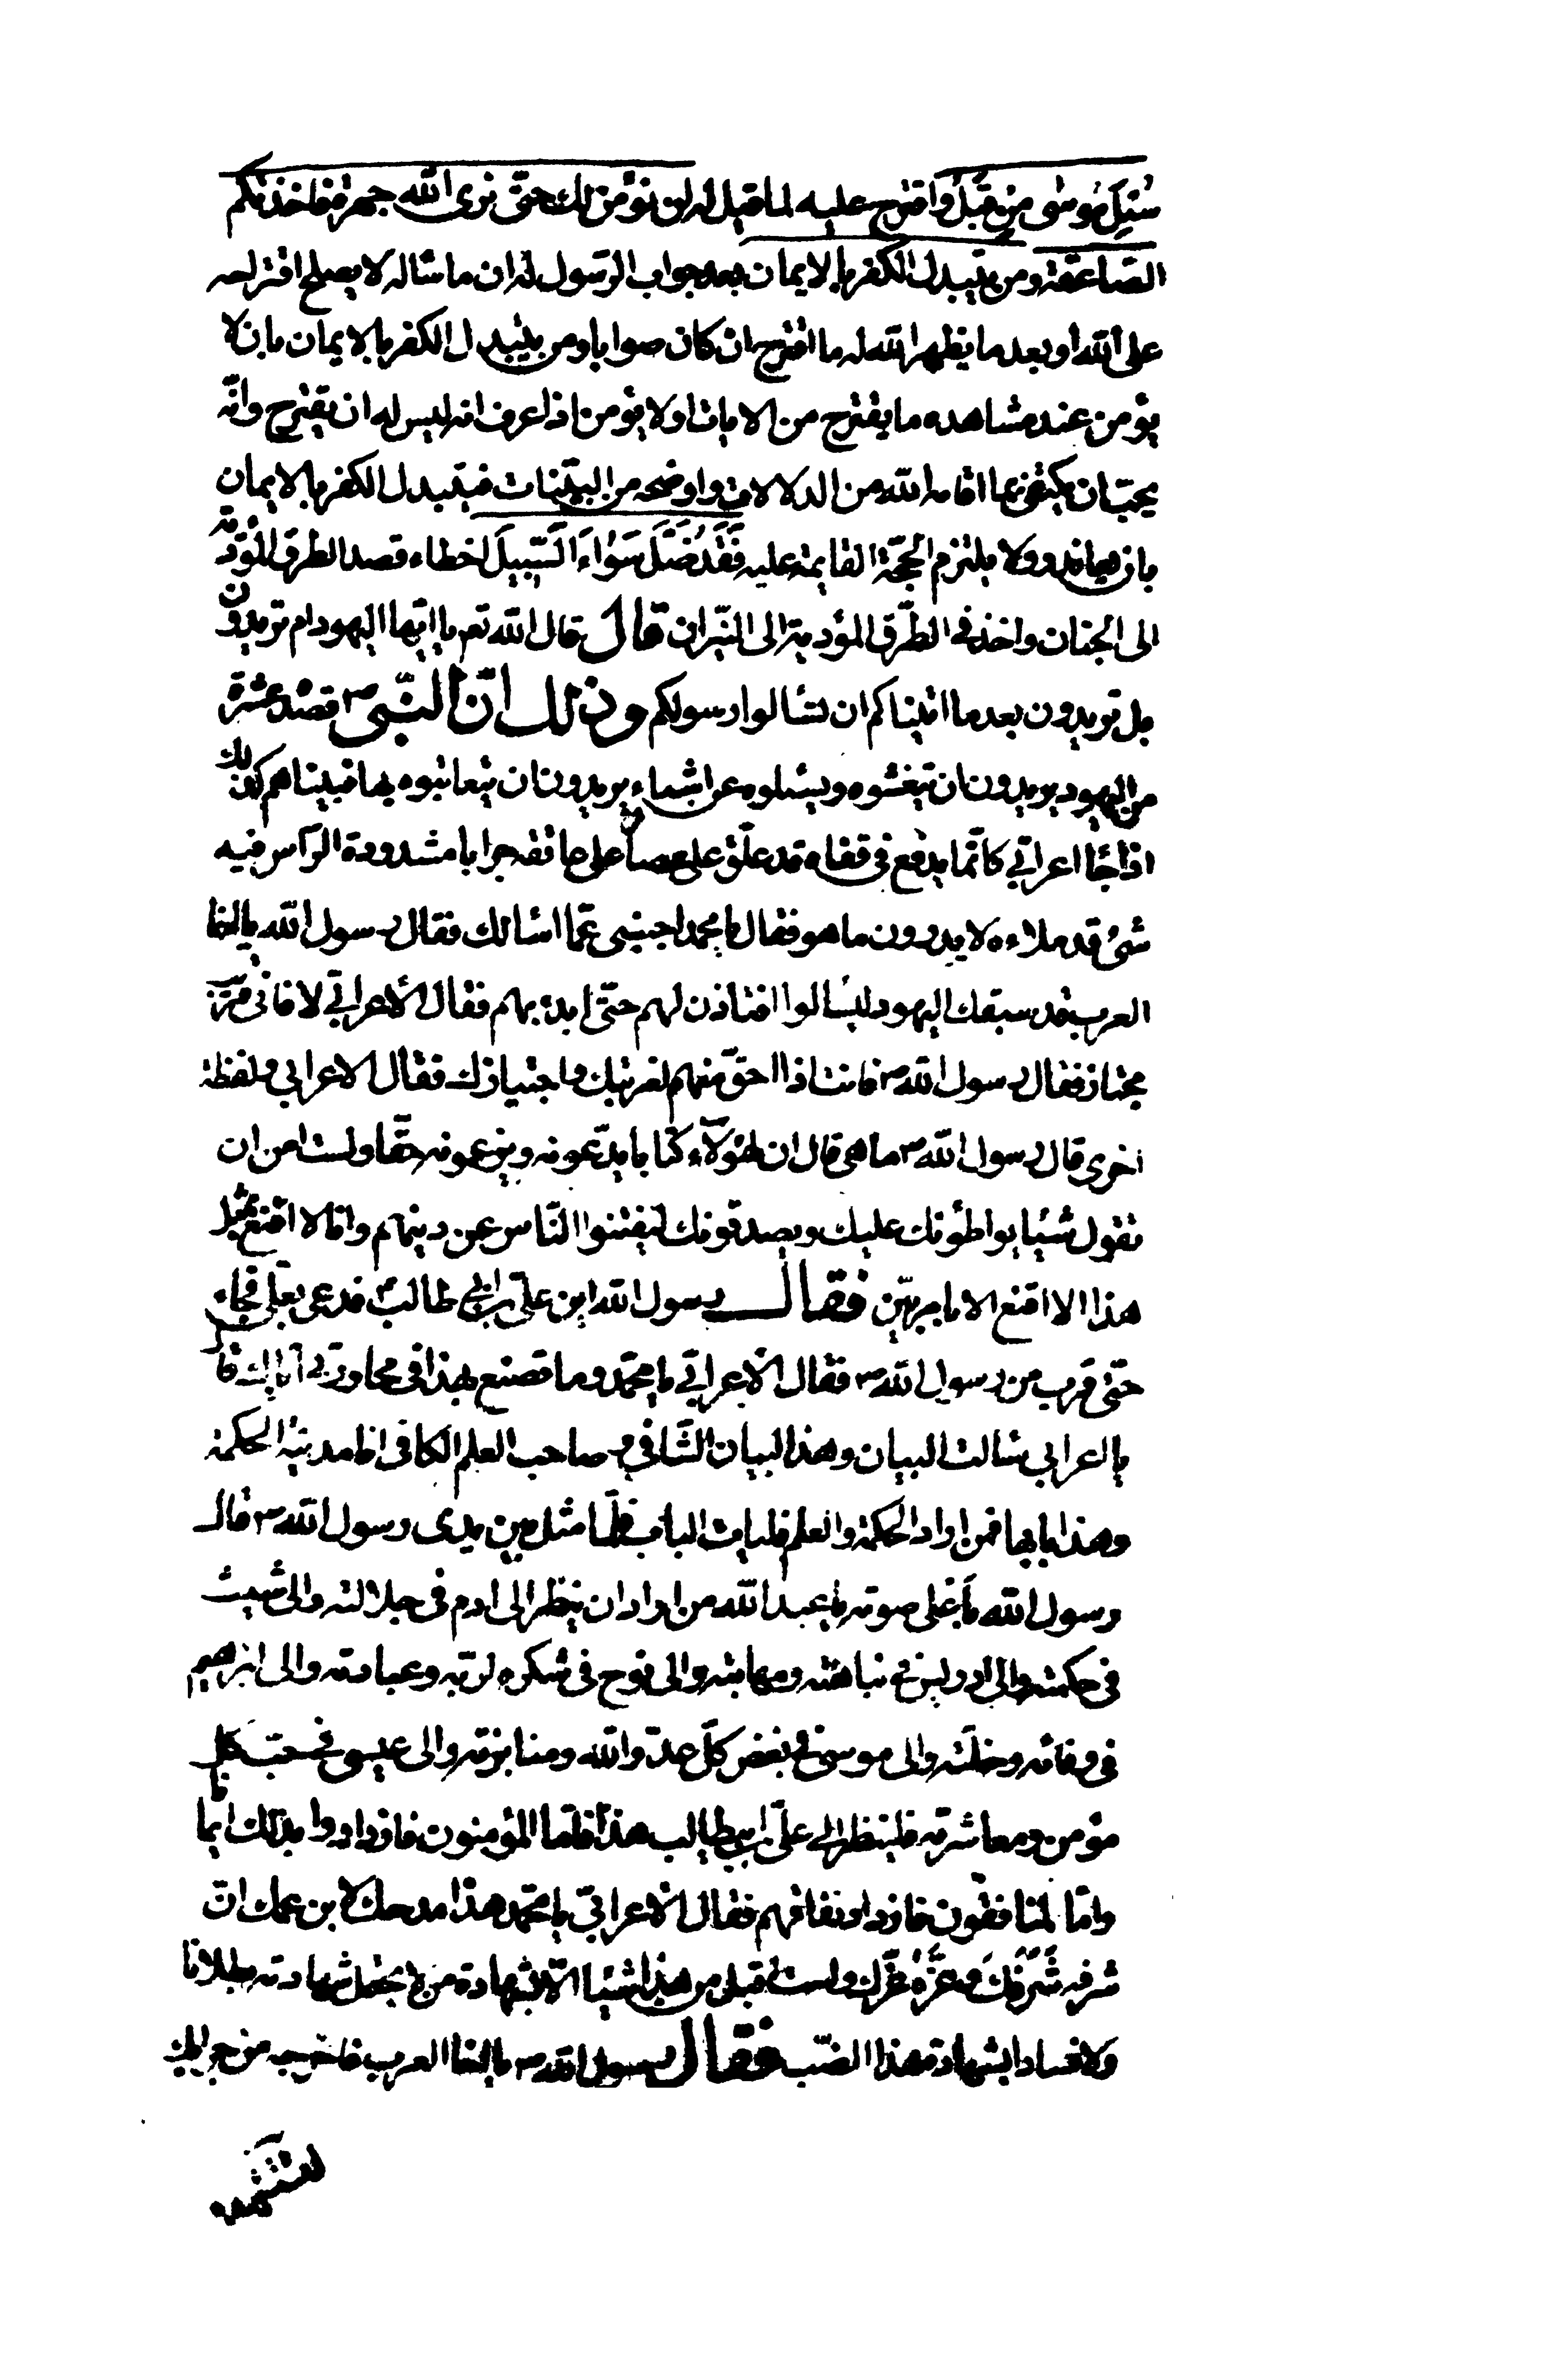 سُئِلَ مُوسٰى مِنْ قَبْلُ وَاقترح عليه لما قيل له لن نؤمن لك حتّى نرى الله جهرة فاخذتكم
الصّاعقة ومن يتبدل الكفر بالايمان بعد جواب الرّسول له ان ما ساله لا يصلح اقتراحه
على الله او بعد ما يظهر الله له ما اقترح ان كان صوابا ومن يتبدل الكفر بالايمان بان لا
يؤمن عند مشاهده ما يقترح من الايات او لا يؤمن اذا عرف انه ليس له ان يقترح وانّه
يجب ان يكتفى بما اقامه الله من الدلالات واوضحه من البيّنات فيتبدل الكفر بالايمان
بان يعاند ولا يلتزم الحجّة القايمة عليه فَقَدْ ضَلَّ سَوٰاءَ السَّبِيلَ اخطاء قصد الطرق المؤدّية
الى الجنان واخذ فى الطّرق المؤدية الى النّيران قال قال الله تعم يا ايّها اليهود ام تريدون
بل تريدون بعد ما اتيناكم ان تسالوا رسولكم وذلك انّ النّبى ص قصده عشرة
من اليهود يريدون ان يتعنتوه ويسئلوه عن اشياء يريدون ان يتعانتوه بها فبيناهم كذلك
اذا جٰا اعرابّي كانّما يدفع فى قفاه قد علّق على عصا على عاتقه جرابا مشدودة الرّاس فيه
شئ قد ملاءه لا يدرون ما هو فقال يا محمد اجبنى عمّا اسالك فقال رسول الله يا اخا
العرب قد سبقك اليهود ليسالوا افتاذن لهم حتّى ابدء بهم فقال الأعرابّي لا فانى غريب
مجتاز فقال رسول الله ص فانت اذا احقّ منهم لغربتك واجتيازك فقال الاعرابى ولفظة
اخرى قال رسول الله ص ما هى قال ان هؤلآء كتابا يدّعونه ويزعمونه حقّا ولست امن ان
تقول شيئا يواطؤنك عليك ويصدقونك ليفتنوا النّاس عن دينهم وانا لا اقنع بمثل
هذا الا اقنع الا بامر بيّن فقال رسول الله اين علىّ بن ابى طالب ع فدعى بعلى فجاء
حتى قرب من رسول الله ص فقال الأعرابّي يا محمّد وما تصنع بهذا فى محاورتى ايّاك قا
يا اعرابى سالت البيان وهذا البيان الشّافى وصاحب العلم الكافى انا مدينة الحكمة
وهذا بابها فمن اراد الحكمة والعلم فليات الباب فلمّا مثل بين يدى رسول الله ص قال
رسول الله بأعلى صوته يا عبد الله من اراد ان ينظر الى ادم فى جلالته والى شيث
فى حكمته والى ادريس فى نباهته ومهابته والى نوح فى شكره لربّه وعبادته والى ابرهيم
فى وفائه وخلّته والى موسى فى بغض كلّ عدّو الله ومنابزته والى عيسى فى حبّ كل
مؤمن ومعاشرته فلينظر الى علىّ بن ابيطالب هذا فامّا المؤمنون فازدادوا بذلك ايما
وامّا لمنافقون فازداد نفاقهم فقال الأعرابّي يا محمّد هذا مدحك لابن عمك انّ
شرفه شَرَفُكَ وعزّه عزّك ولست اقبل من هذا شيئا الّا بشهادة من لا يحتمل شهادته بطلانا
ولا فسادا بشهادة هذا الضّب فقال رسول الله ص يا اخا العرب فاخرجه من جرابك
لتستشهده